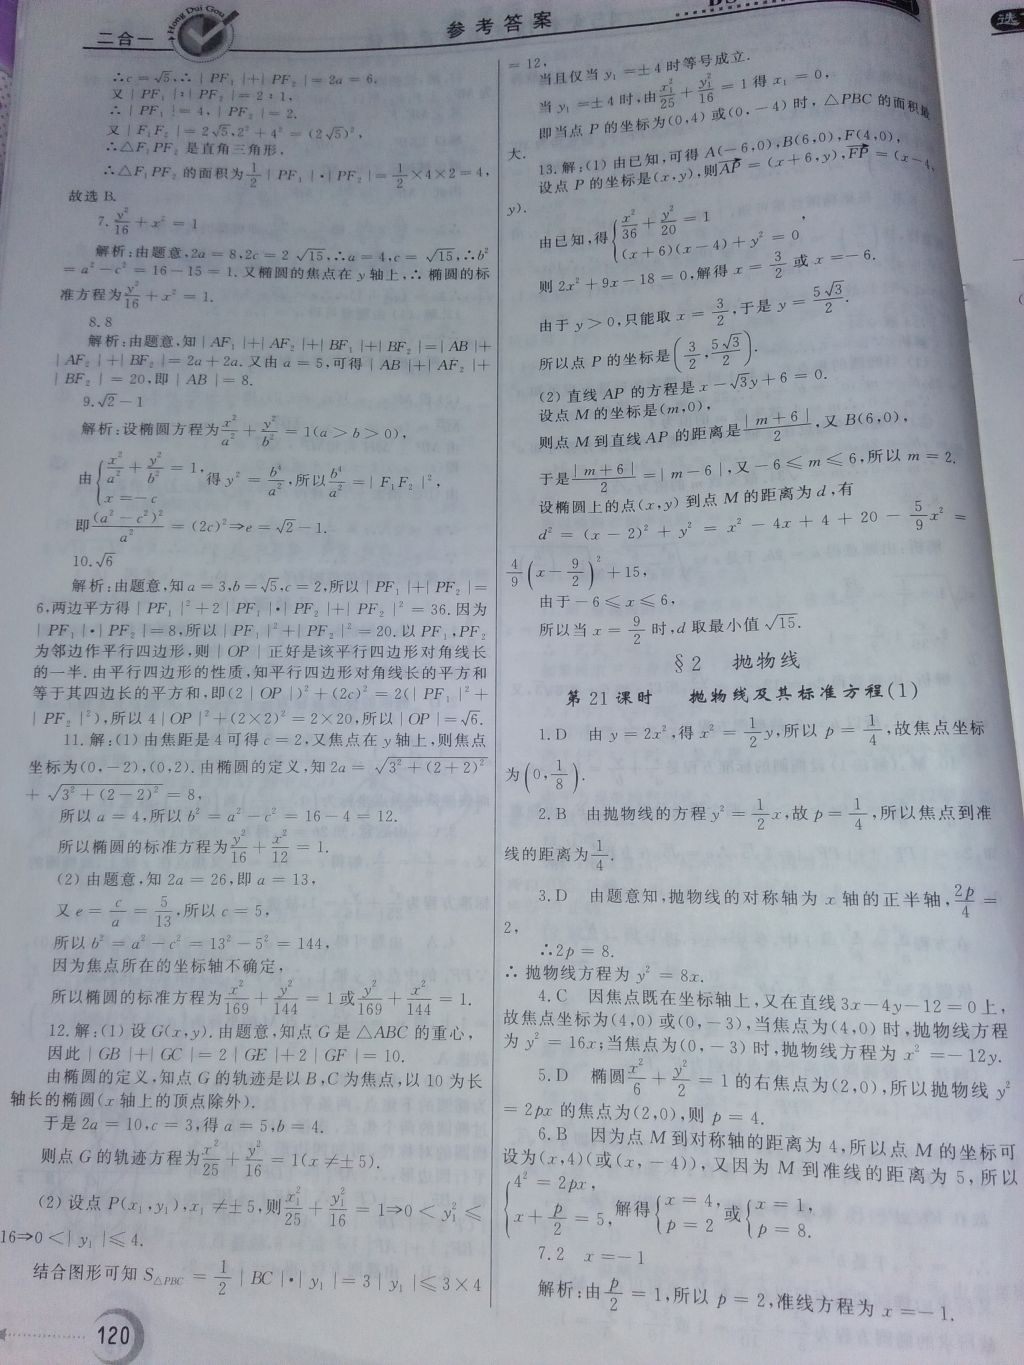 二合一
Hong Dui Gou
参考答案
∴c=√5,∴|PF₁|+|PF₂|=2a=6,
又|PF₁|∶|PF₂|=2∶1,
∴|PF₁|=4,|PF₂|=2.
又|F₁F₂|=2√5,2²+4²=(2√5)²,
∴△F₁PF₂是直角三角形.
∴△F₁PF₂的面积为1/2|PF₁|·|PF₂|=1/2×4×2=4,
故选B.
7. y²/16+x²=1
解析:由题意,2a=8,2c=2√15,∴a=4,c=√15,∴b²
=a²-c²=16-15=1.又椭圆的焦点在y轴上,∴椭圆的标
准方程为y²/16+x²=1.
8.8
解析:由题意,知|AF₁|+|AF₂|+|BF₁|+|BF₂|=|AB|+
|AF₂|+|BF₂|=2a+2a.又由a=5,可得|AB|+|AF₂|+
|BF₂|=20,即|AB|=8.
9.√2-1
解析:设椭圆方程为x²/a²+y²/b²=1(a>b>0),
由{x²/a²+y²/b²=1, x=-c 得y²=b⁴/a²,所以b⁴/a²=|F₁F₂|²,
即(a²-c²)²/a²=(2c)²⇒e=√2-1.
10.√6
解析:由题意,知a=3,b=√5,c=2,所以|PF₁|+|PF₂|=
6,两边平方得|PF₁|²+2|PF₁|·|PF₂|+|PF₂|²=36.因为
|PF₁|·|PF₂|=8,所以|PF₁|²+|PF₂|²=20.以PF₁,PF₂
为邻边作平行四边形,则|OP|正好是该平行四边形对角线长
的一半.由平行四边形的性质,知平行四边形对角线长的平方和
等于其四边长的平方和,即(2|OP|)²+(2c)²=2(|PF₁|²+
|PF₂|²),所以4|OP|²+(2×2)²=2×20,所以|OP|=√6.
11.解:(1)由焦距是4可得c=2,又焦点在y轴上,则焦点
坐标为(0,-2),(0,2).由椭圆的定义,知2a=√(3²+(2+2)²)
+√(3²+(2-2)²)=8,
所以a=4,所以b²=a²-c²=16-4=12.
所以椭圆的标准方程为y²/16+x²/12=1.
(2)由题意,知2a=26,即a=13,
又e=c/a=5/13,所以c=5,
所以b²=a²-c²=13²-5²=144,
因为焦点所在的坐标轴不确定,
所以椭圆的标准方程为x²/169+y²/144=1或y²/169+x²/144=1.
12.解:(1)设G(x,y).由题意,知点G是△ABC的重心,
因此|GB|+|GC|=2|GE|+2|GF|=10.
由椭圆的定义,知点G的轨迹是以B,C为焦点,以10为长
轴长的椭圆(x轴上的顶点除外).
于是2a=10,c=3,得a=5,b=4.
则点G的轨迹方程为x²/25+y²/16=1(x≠±5).
(2)设点P(x₁,y₁),x₁≠±5,则x₁²/25+y₁²/16=1⇒0<y₁²≤
16⇒0<|y₁|≤4.
结合图形可知S△PBC=1/2|BC|·|y₁|=3|y₁|≤3×4
120
=12,
当且仅当y₁=±4时等号成立.
当y₁=±4时,由x₁²/25+y₁²/16=1得x₁=0,
即当点P的坐标为(0,4)或(0,-4)时,△PBC的面积最
大.
13.解:(1)由已知,可得A(-6,0),B(6,0),F(4,0),
设点P的坐标是(x,y),则AP=(x+6,y),FP=(x-4,
y).
由已知,得{x²/36+y²/20=1, (x+6)(x-4)+y²=0
则2x²+9x-18=0,解得x=3/2或x=-6.
由于y>0,只能取x=3/2,于是y=5√3/2.
所以点P的坐标是(3/2,5√3/2).
(2)直线AP的方程是x-√3y+6=0.
设点M的坐标是(m,0),
则点M到直线AP的距离是|m+6|/2,又B(6,0),
于是|m+6|/2=|m-6|,又-6≤m≤6,所以m=2.
设椭圆上的点(x,y)到点M的距离为d,有
d²=(x-2)²+y²=x²-4x+4+20-5/9x²=
4/9(x-9/2)²+15,
由于-6≤x≤6,
所以当x=9/2时,d取最小值√15.
§2 抛物线
第21课时 抛物线及其标准方程(1)
1.D 由y=2x²,得x²=1/2y,所以p=1/4,故焦点坐标
为(0,1/8).
2.B 由抛物线的方程y²=1/2x,故p=1/4,所以焦点到准
线的距离为1/4.
3.D 由题意知,抛物线的对称轴为x轴的正半轴,2p/4=
2,
∴2p=8.
∴抛物线方程为y²=8x.
4.C 因焦点既在坐标轴上,又在直线3x-4y-12=0上,
故焦点坐标为(4,0)或(0,-3),当焦点为(4,0)时,抛物线方程
为y²=16x;当焦点为(0,-3)时,抛物线方程为x²=-12y.
5.D 椭圆x²/6+y²/2=1的右焦点为(2,0),所以抛物线y²
=2px的焦点为(2,0),则p=4.
6.B 因为点M到对称轴的距离为4,所以点M的坐标可
设为(x,4)(或(x,-4)),又因为M到准线的距离为5,所以
{4²=2px, x+p/2=5, 解得{x=4, p=2 或{x=1, p=8.
7.2 x=-1
解析:由p/2=1,所以p=2,准线方程为x=-1.
选